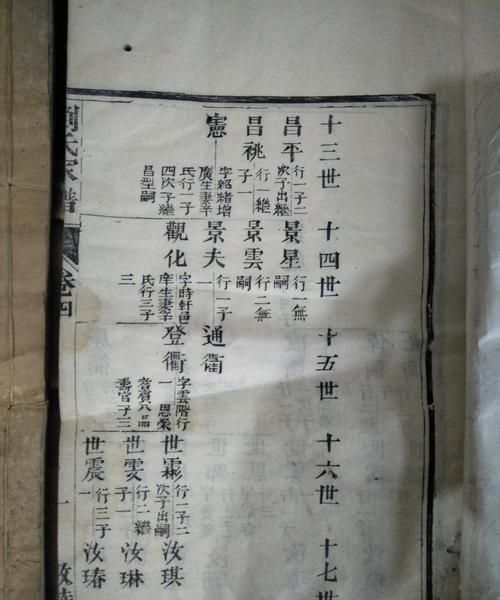 十三世
十四世
十五世
十六世
十七世
昌平
行一子二
次子出繼
景星
行一無
嗣
昌祧
行一繼
子一
景雲
行二無
嗣
憲
字紹緒增
廣生妻辛
氏行一子
四次子繼
昌型嗣
景夫
行一子
一
通衢
觀化
字時軒邑
庠生妻辛
氏行三子
三
登衢
字雲階行
一 恩榮
耆賓八品
壽官子三
世霦
行一子二
次子出嗣
汝琪
世雯
行二繼
子一
汝琳
世震
行三子
一
汝瑃
氏家譜
卷四
一